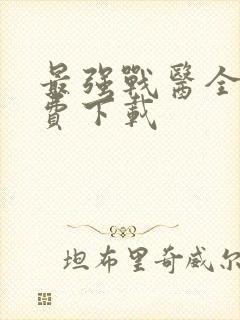 最强戰醫全
費下載
坦布里奇威尔